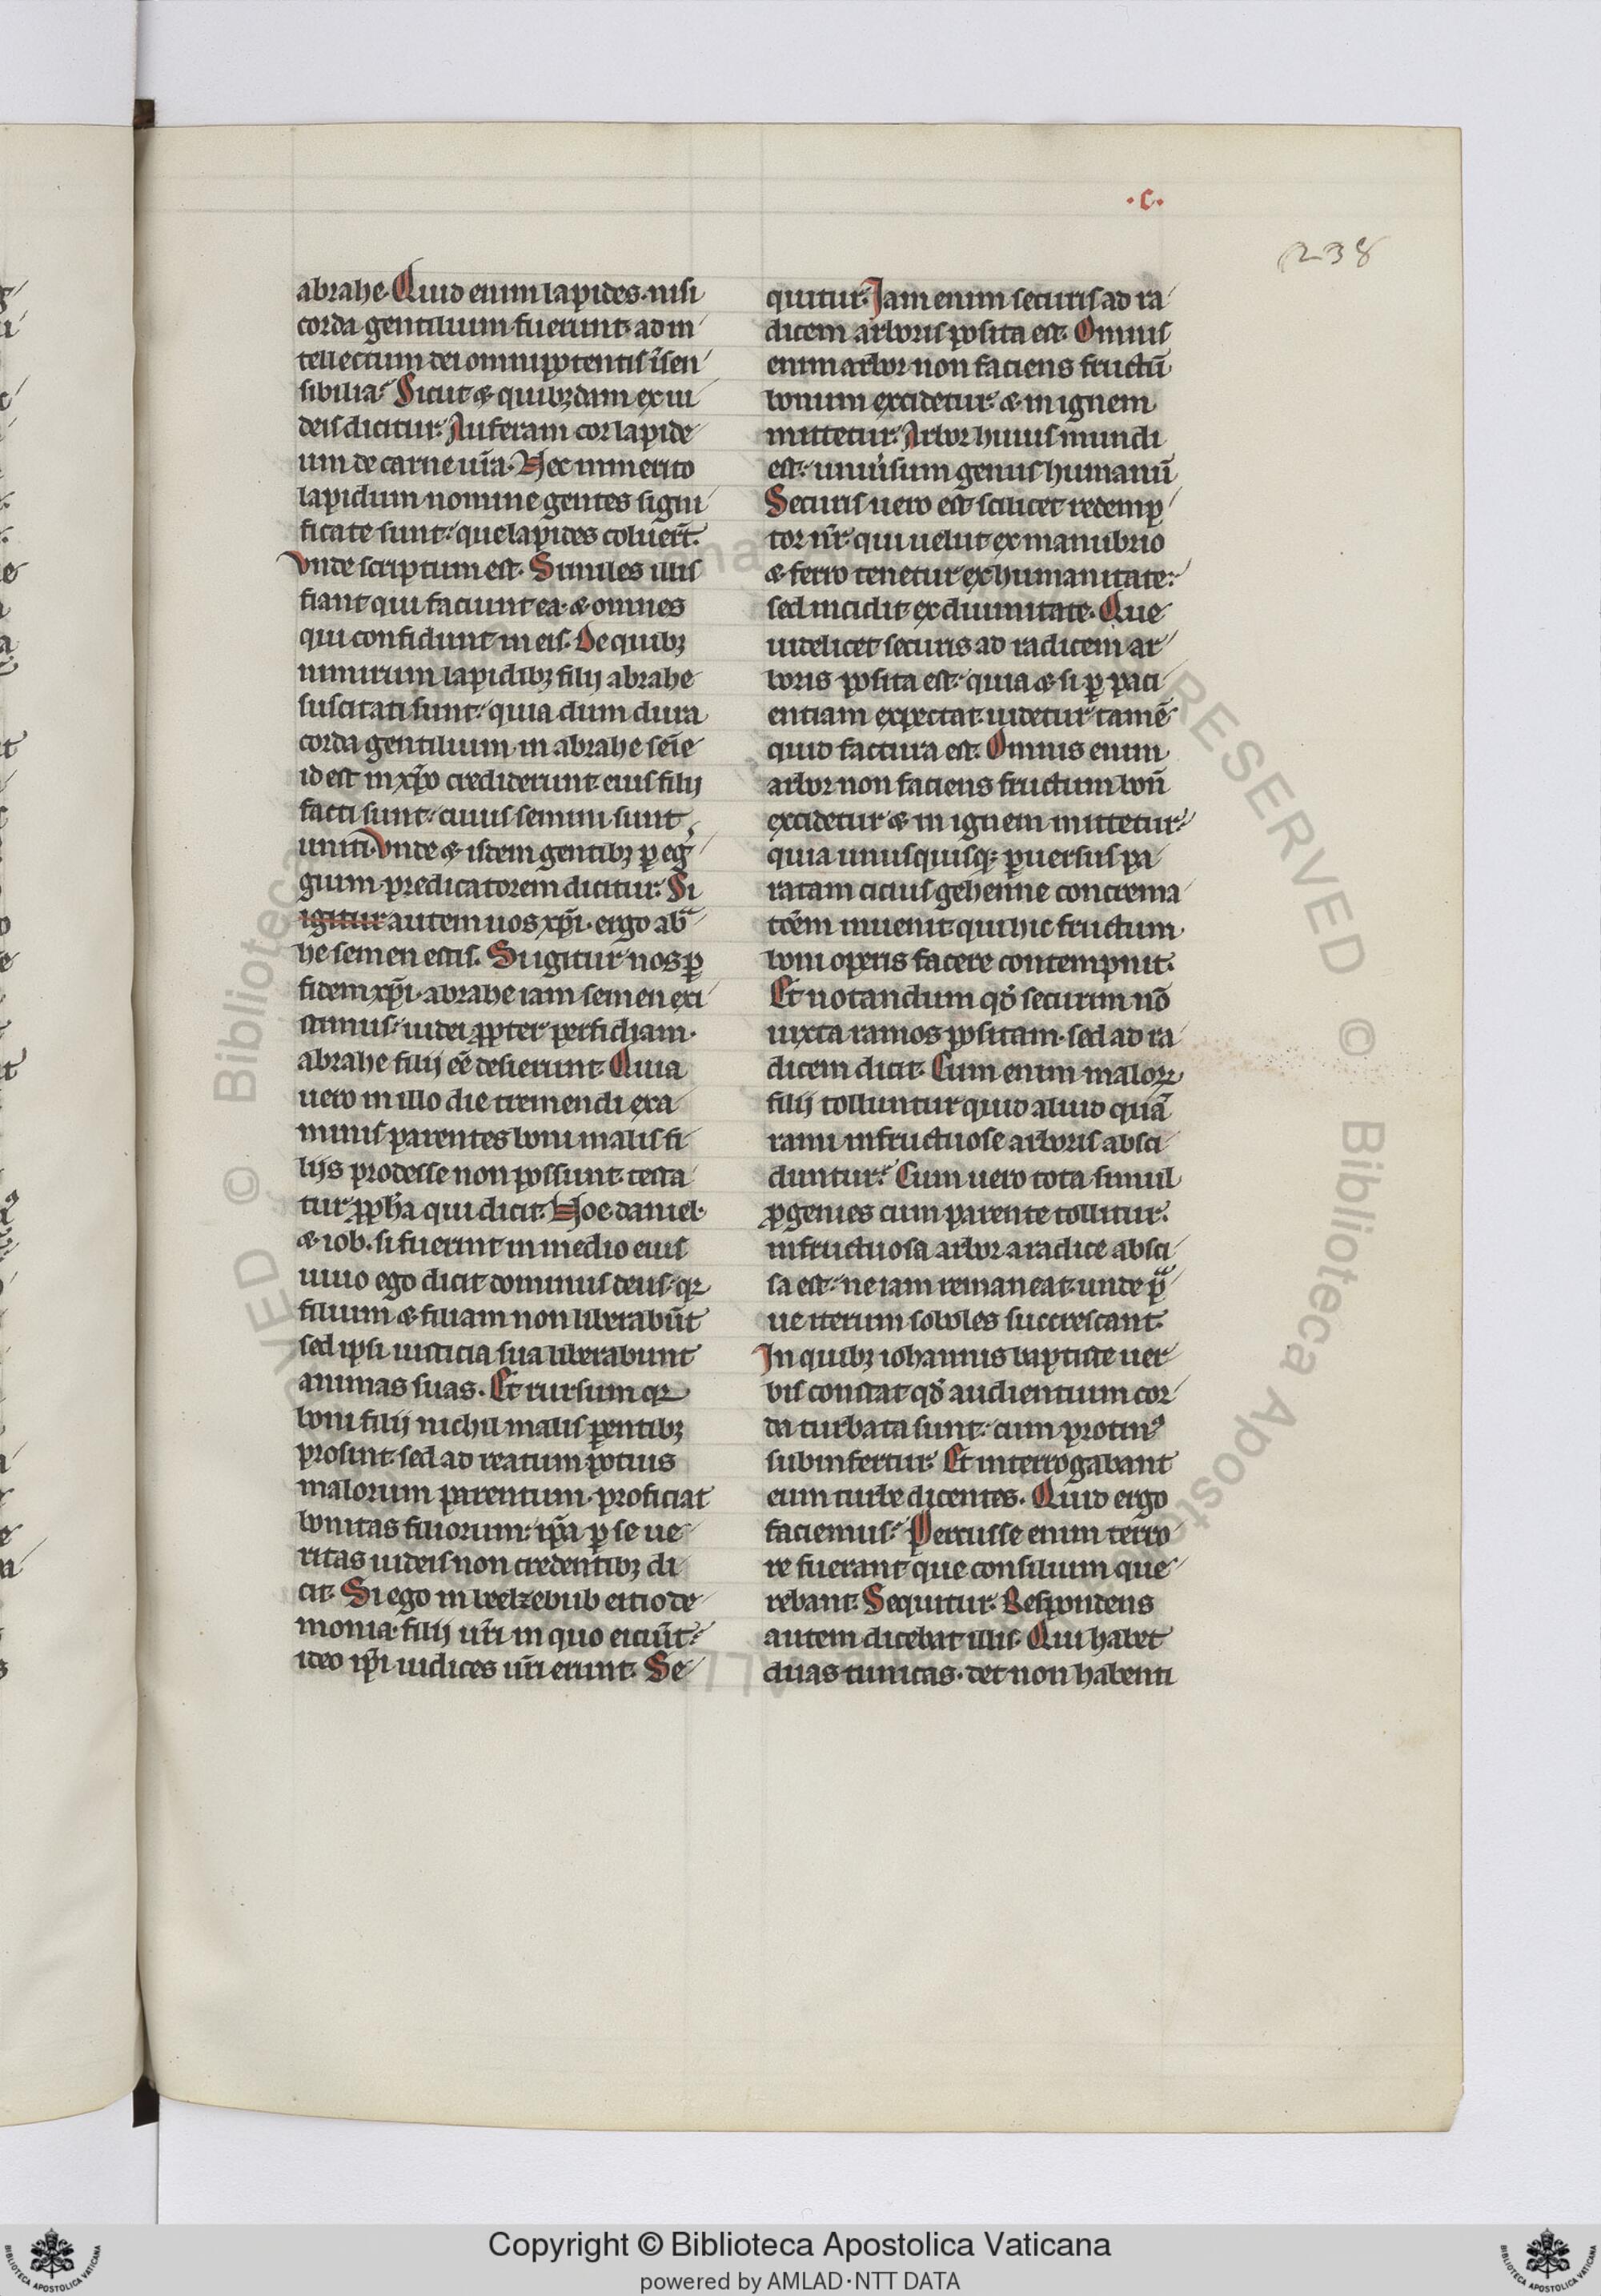 ·c·
238
abrahe. Quid enim lapides. nisi
corda gentilium fuerunt ad in
tellectum dei omnipotentis ĩsen
sibilia? Sicut & quibꝫdam ex iu
deis dicitur. Auferam cor lapide
um de carne ur̄a. Nec inmerito
lapidum nomine gentes signi
ficate sunt: que lapides coluer̄t.
Vnde scriptum est. Similes illis
fiant qui faciunt ea. & omnes
qui confidunt in eis. De quibꝫ
nimirum lapidibꝫ filij abrahe
suscitati sunt: quia dum dura
corda gentilium in abrahe sem̄e
id est in xp̄o crediderunt eius filij
facti sunt: cuius semini sunt
uniti. Vnde & isdem gentibꝫ ꝑ eg̾
gium predicatorem dicitur. Si
igitur autem uos xp̄i. ergo abᵃ
he semen estis. Si igitur nos ꝑ
fidem xp̄i. abrahe iam semen exi
stimus: iudei ꝓpter perfidiam.
abrahe filij eē desierunt. Quia
uero in illo die tremendi exa
minis parentes boni malis fi
lijs prodesse non possunt. testa
tur ꝓph̄a qui dicit. Noe. daniel.
& iob. si fuerint in medio eius
uiuo ego dicit dominus deus. qꝛ
filium & filiam non liberabūt
sed ipsi iusticia sua liberabunt
animas suas. Et rursum qꝛ
boni filij nichil malis ꝑentibꝫ
prosint. sed ad reatum potius
malorum parentum. proficiat
bonitas filiorum: ip̄a ꝑ se ue
ritas iudeis non credentibꝫ di
cit. Si ego in beelzebub eitio de
monia. filij ur̄i in quo eiciūt?
ideo ip̄i iudices ur̄i erunt. Se
quitur. Jam enim securis ad ra
dicem arboris posita est. Omnis
enim arbor non faciens fructū
bonum excidetur. & in ignem
mittetur. Arbor huius mundi
est: uniu̾sum genus humanū
Securis uero est scilicet redemp
tor nr̄. qui uelut ex manubrio
& ferro tenetur ex humanitate:
sed incidit ex diuinitate. Que
uidelicet securis ad radicem ar
boris posita est: quia & si ꝑ paci
entiam expectat. uidetur tamē
quid factura est. Omnis enim
arbor non faciens fructum bonū
excidetur & in ignem mittetur:
quia unusquisqꝫ ꝑuersus pa
ratam cicius gehenne concrema
tōem inuenit. qui hic fructum
boni operis facere contempnit.
Et notandum qd̄ securim nō
iuxta ramos positam. sed ad ra
dicem dicit. Cum enim maloꝝ
filij tolluntur quid aliud quā
rami infructuose arboris absci
duntur? Cum uero tota simul
ꝓgenies cum parente tollitur.
infructuosa arbor a radice absci
sa est: ne iam remaneat. unde pᵃ
ue iterum soboles succrescant.
In quibꝫ iohannis baptiste uer
bis constat qd̄ audientium cor
da turbata sunt: cum protinꝰ
subinfertur. Et interrogabant
eum turbe dicentes. Quid ergo
faciemus? Percusse enim terro
re fuerant que consilium que
rebant. Sequitur. Respondens
autem dicebat illis. Qui habet
duas tunicas. det non habenti
Copyright © Biblioteca Apostolica Vaticana
powered by AMLAD·NTT DATA